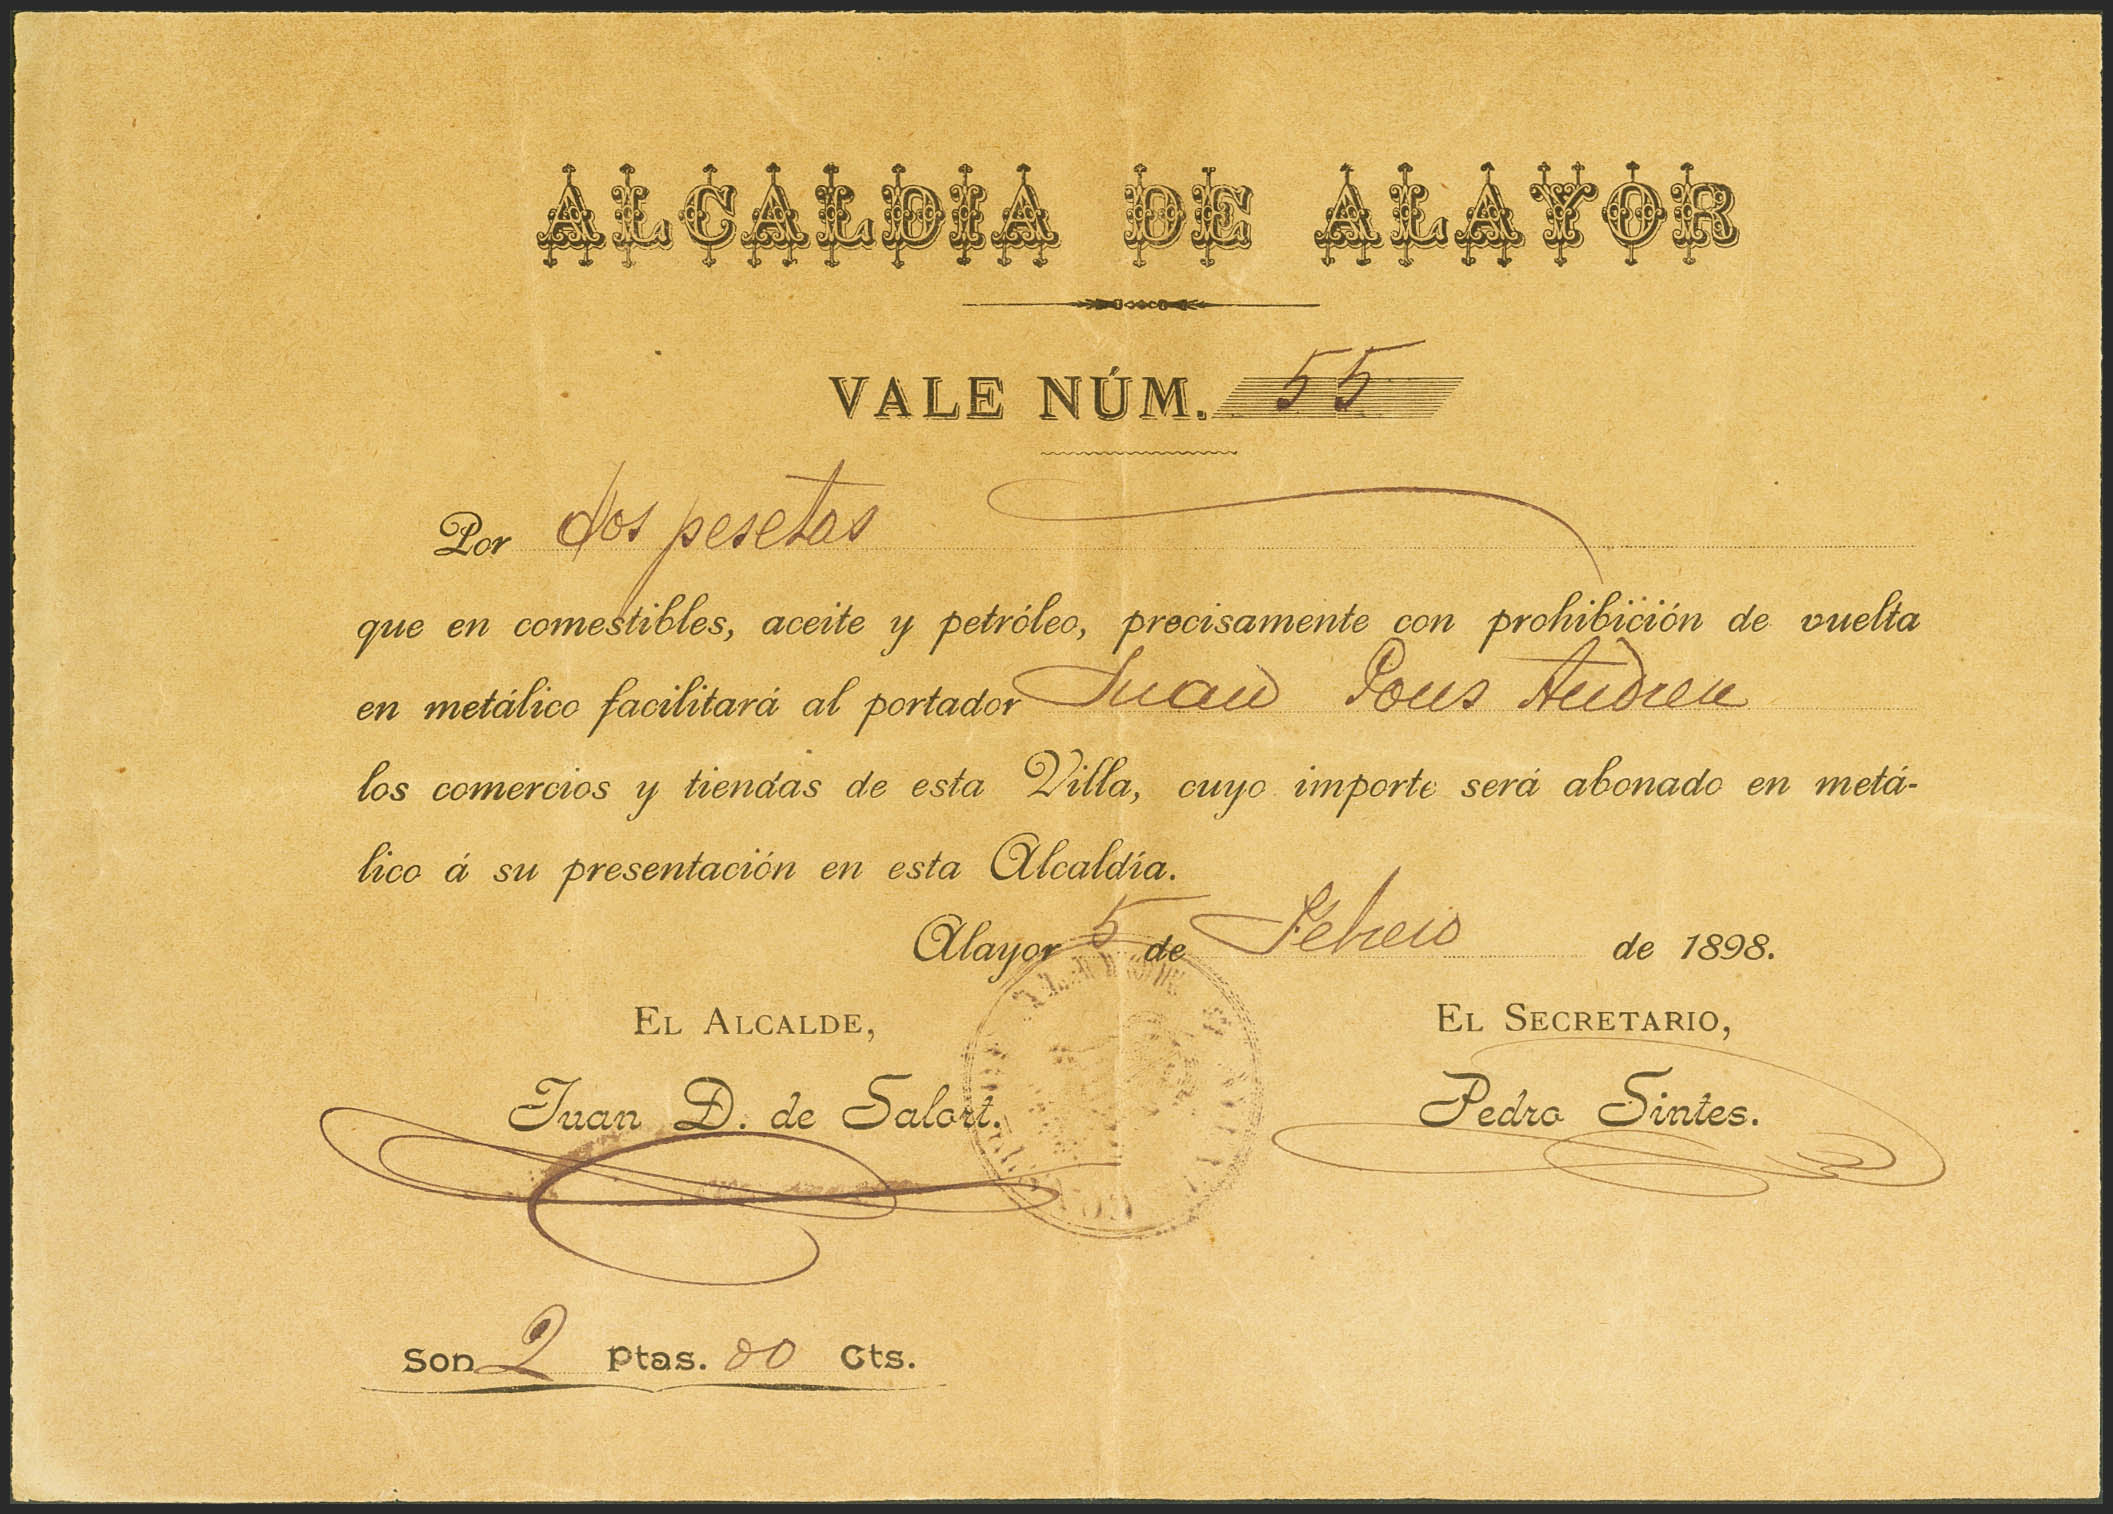 ALCALDIA DE ALAYOR
VALE NÚM. 55
Por dos pesetas
que en comestibles, aceite y petróleo, precisamente con prohibición de vuelta
en metálico facilitará al portador Juan Pons Andreu
los comercios y tiendas de esta Villa, cuyo importe será abonado en metá-
lico á su presentación en esta Alcaldía.
Alayor 5 de Febrero de 1898.
EL ALCALDE,
EL SECRETARIO,
Juan D. de Salort.
Pedro Sintes.
Son 2 Ptas. 00 Cts.